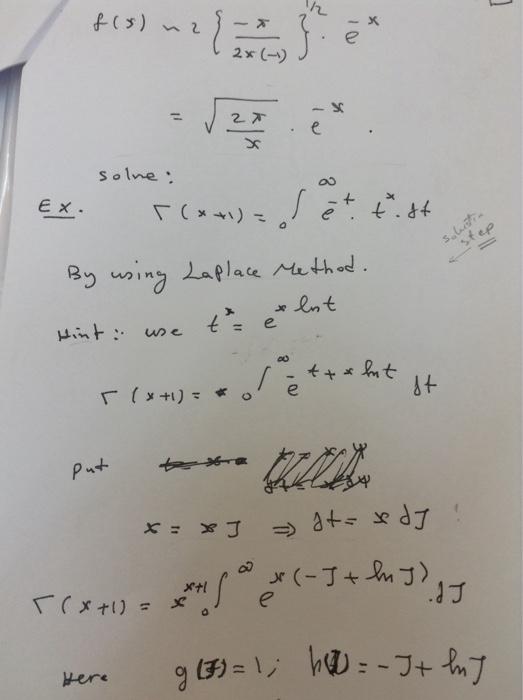 f(x) ~ 2 { -π / 2x(-1) }^1/2 . e^-x
= √(2π / x) . e^-x .
solve :
Ex. Γ(x+1) = ₀∫^∞ e^-t . t^x . dt
step
By using Laplace Method.
Hint :- use t^x = e^x ln t
Γ(x+1) = ₀∫^∞ e^-t + x ln t dt
put
x = x J ⇒ dt = x dJ
Γ(x+1) = x^x+1 ₀∫^∞ e^x(-J + ln J) . dJ
Here g(J) = 1 ; h(J) = -J + ln J